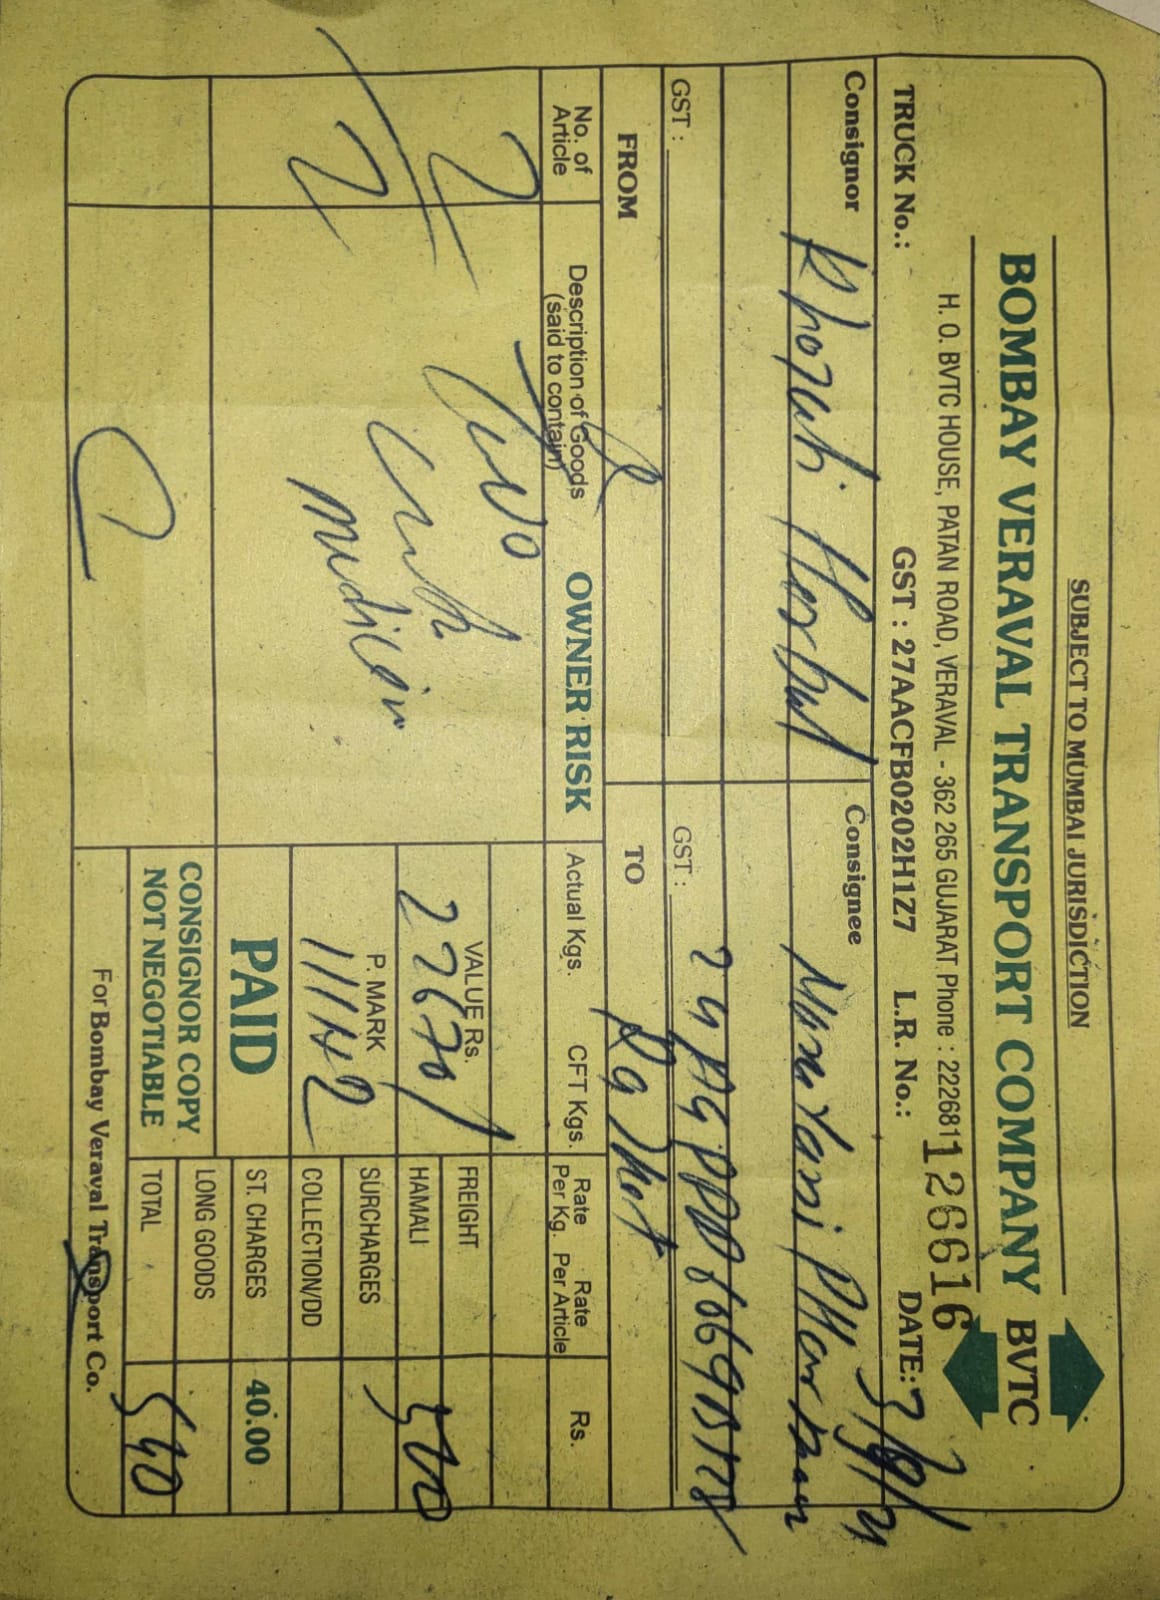 SUBJECT TO MUMBAI JURISDICTION
BOMBAY VERAVAL TRANSPORT COMPANY BVTC
H. O. BVTC HOUSE, PATAN ROAD, VERAVAL - 362 265 GUJARAT Phone : 222681
126616
TRUCK No.: GST : 27AACFB0202H1Z7 L.R. No.: DATE:
Consignor Consignee
GST : GST :
FROM TO
No. of Article Description of Goods (said to contain) OWNER RISK Actual Kgs. CFT Kgs. Rate Per Kg. Rate Per Article Rs.
2 Two
VALUE Rs. 22670/ FREIGHT
HAMALI 500
P. MARK 11142 SURCHARGES
COLLECTION/DD
PAID ST. CHARGES 40.00
CONSIGNOR COPY LONG GOODS
NOT NEGOTIABLE TOTAL 540
For Bombay Veraval Transport Co.